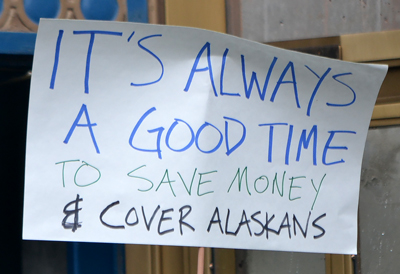 IT'S ALWAYS
A GOOD TIME
TO SAVE MONEY
& COVER ALASKANS